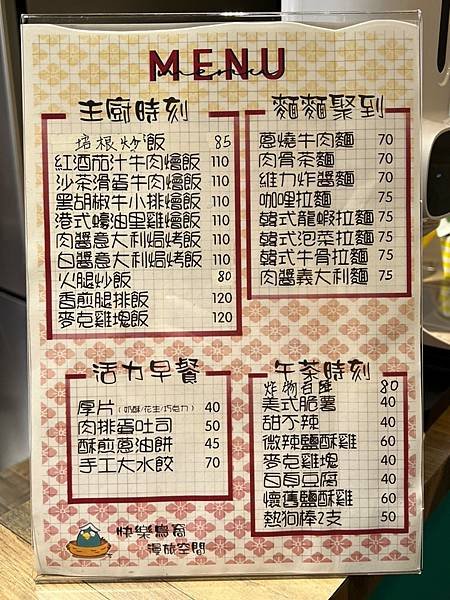 MENU
menu
主廚時刻
培根炒飯 85
紅酒茄汁牛肉燴飯 110
沙茶滑蛋牛肉燴飯 110
黑胡椒牛小排燴飯 110
港式蠔油里雞燴飯 110
肉醬意大利焗烤飯 110
白醬意大利焗烤飯 110
火腿炒飯 80
香煎腿排飯 120
麥克雞塊飯 120
麵麵聚到
蔥燒牛肉麵 70
肉骨茶麵 70
維力炸醬麵 70
咖哩拉麵 75
韓式龍蝦拉麵 75
韓式泡菜拉麵 75
韓式牛骨拉麵 75
肉醬義大利麵 75
活力早餐
厚片(奶酥/花生/巧克力) 40
肉排蛋吐司 50
酥煎蔥油餅 45
手工大水餃 70
午茶時刻
炸物 80
美式脆薯 40
甜不辣 40
微辣鹽酥雞 60
麥克雞塊 40
百頁豆腐 40
懷舊鹽酥雞 60
熱狗棒2支 50
快樂鳥窩
漫旅空間